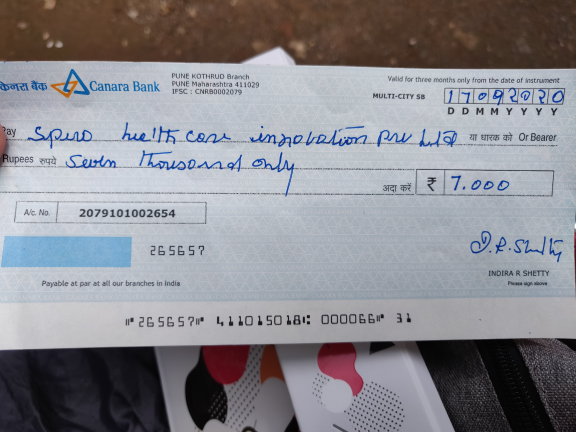 केनरा बैंक Canara Bank
PUNE KOTHRUD Branch
PUNE Maharashtra 411029
IFSC : CNRB0002079
Valid for three months only from the date of instrument
MULTI-CITY SB 17092020
D D M M Y Y Y Y
Pay Spiro health care innovation Pvt Ltd या धारक को Or Bearer
Rupees रुपये Seven thousand only
अदा करें ₹ 7.000
A/c. No. 2079101002654
265657
I.R.Shetty
INDIRA R SHETTY
Please sign above
Payable at par at all our branches in India
⑈265657⑈ 411015018⑆ 000066⑈ 31